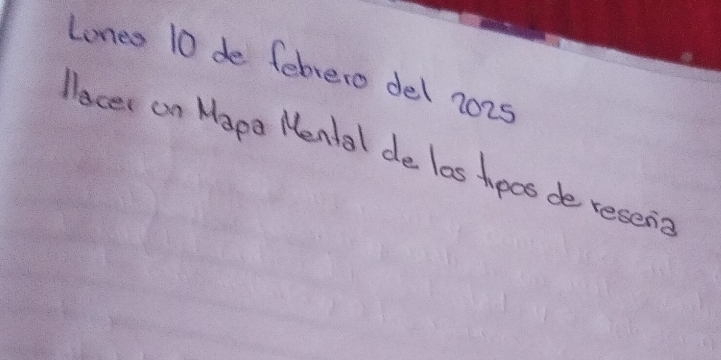 Lunes 10 de febrero del 2025
Hacer un Mapa Mental de los tipos de reseña